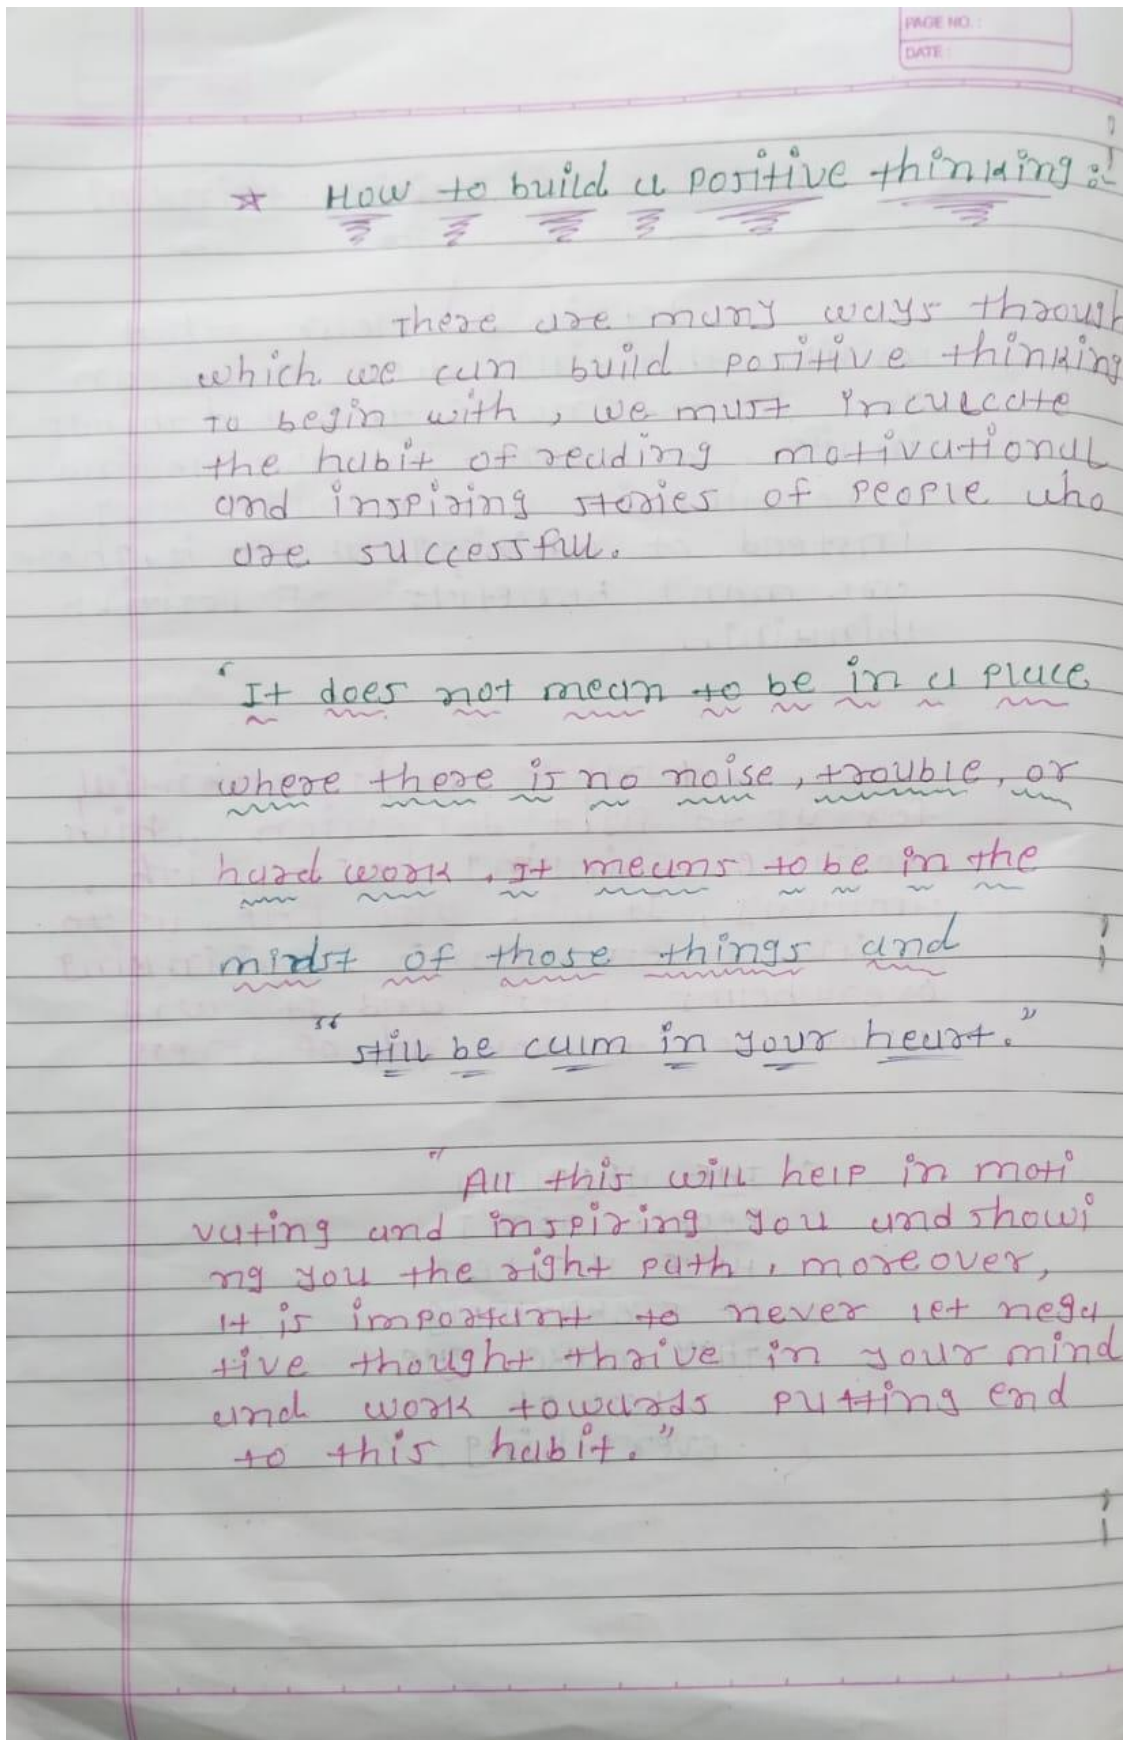 PAGE NO. :
DATE :
☆ How to build a positive thinking :-
There are many ways through
which we can build positive thinking
To begin with, we must inculcate
the habit of reading motivational
and inspiring stories of people who
are successful.
"It does not mean to be in a place
where there is no noise, trouble, or
hard work. It means to be in the
midst of those things and
"still be calm in your heart."
"All this will help in moti
vating and inspiring you and showi
ng you the right path, moreover,
it is important to never let nega
tive thought thrive in your mind
and work towards putting end
to this habit."